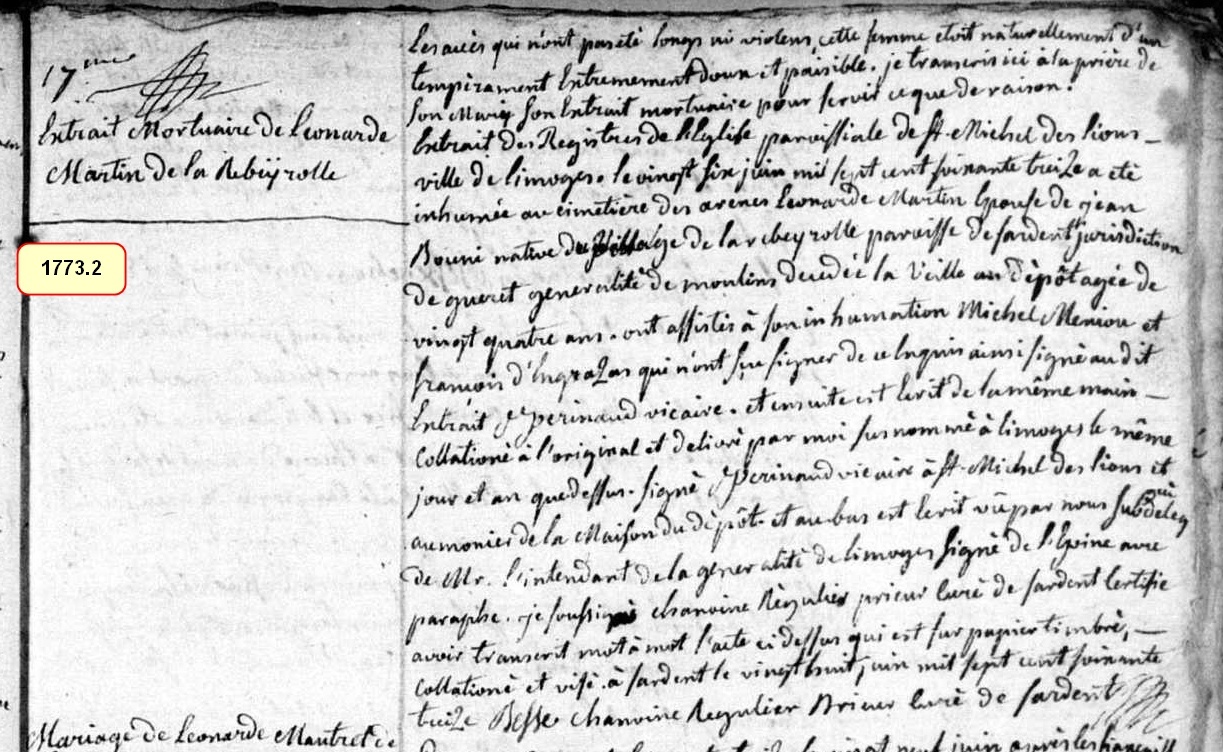 17eme
Extrait Mortuaire de Leonarde
Martin de la Rebeyrolle
1773.2
Mariage de Leonarde Mautret de
les accès qui n'ont pas eté longs ni violens, cette femme etoit naturellement d'un
tempérament Extremement doux et paisible. je transcris ici à la prière de
son Mary son Extrait mortuaire pour servir ce que de raison.
Extrait des Registres de l'Eglise paroissiale de st. Michel des lions
ville de limoges. le vingt six juin mil sept cent soixante treize a eté
inhumée au cimetière des arenes Leonarde Martin Epouse de jean
Bouni native du village de la rebeyrolle paroisse de sardent jurisdiction
de gueret generalité de moulins decedée la veille au dèpôt agée de
vingt quatre ans. ont assistés à son inhumation Michel Meniou et
francois d'Ingrazas qui n'ont sçu signer de ce Enquis ainsi signé au dit
Extrait perinaud vicaire. et ensuite est Ecrit de la même main
Collationé à l'original et delivré par moi susnommé à limoges le même
jour et an que dessus. signé perinaud vicaire à st. Michel des lions et
aumonier de la Maison du dèpôt. et au bas est Ecrit vû par nous subdelegué
de Mr. l'intendant de la generalité de limoges signé de l'Epine avec
paraphe. je soussigné chanoine Régulier prieur curé de sardent Certifie
avoir transcrit mot à mot l'acte ci dessus qui est sur papier timbré,
Collationé et visé. à sardent le vingt huit juin mil sept cent soixante
treize Besse chanoine Regulier Prieur Curé de sardent